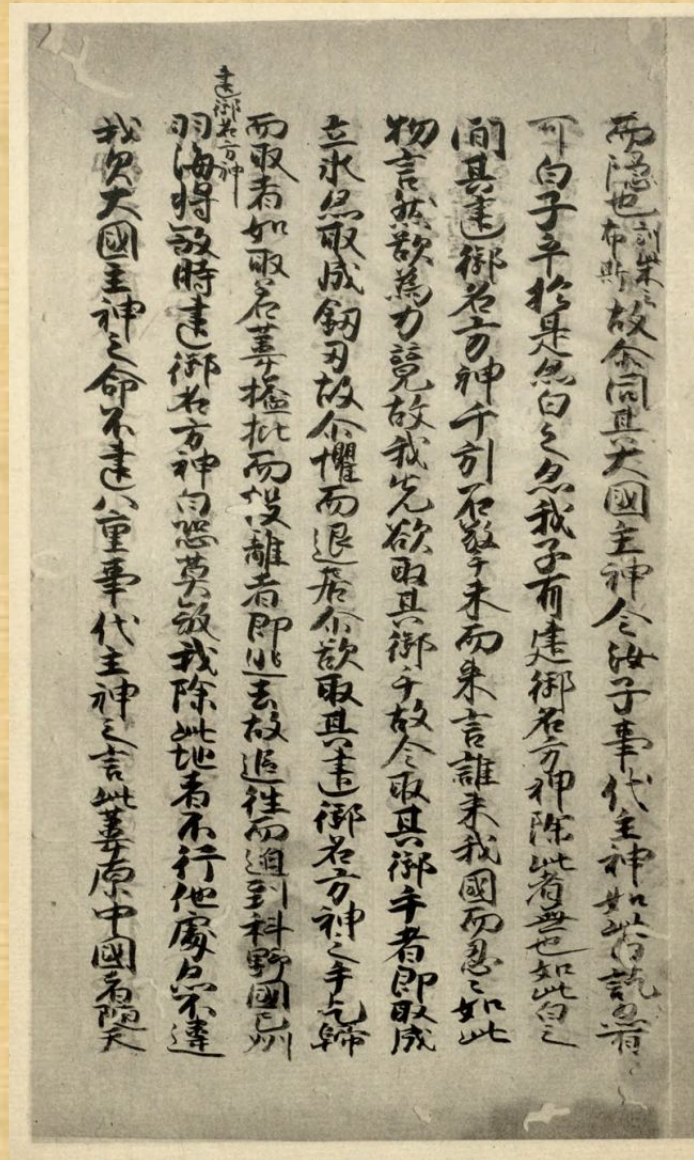 而隠也訓柴云布斯故尓問其大國主神今汝子事代主神如此白訖亦有
可白子乎於是亦白之亦我子有建御名方神除此者無也如此白之
間其建御名方神千引石擎手末而来言誰来我國而忍〻如此
物言然欲為力競故我先欲取其御手故令取其御手者即取成
立氷亦取成釼刃故尓懼而退居尓欲取其建御名方神之手乞歸
而取者如取若葦搤批而投離者即逃去故追往而迫到科野國之州
建御名方神
羽海将殺時建御名方神白恐莫殺我除此地者不行他處亦不違
我父大國主神之命不違八重事代主神之言此葦原中國者随天